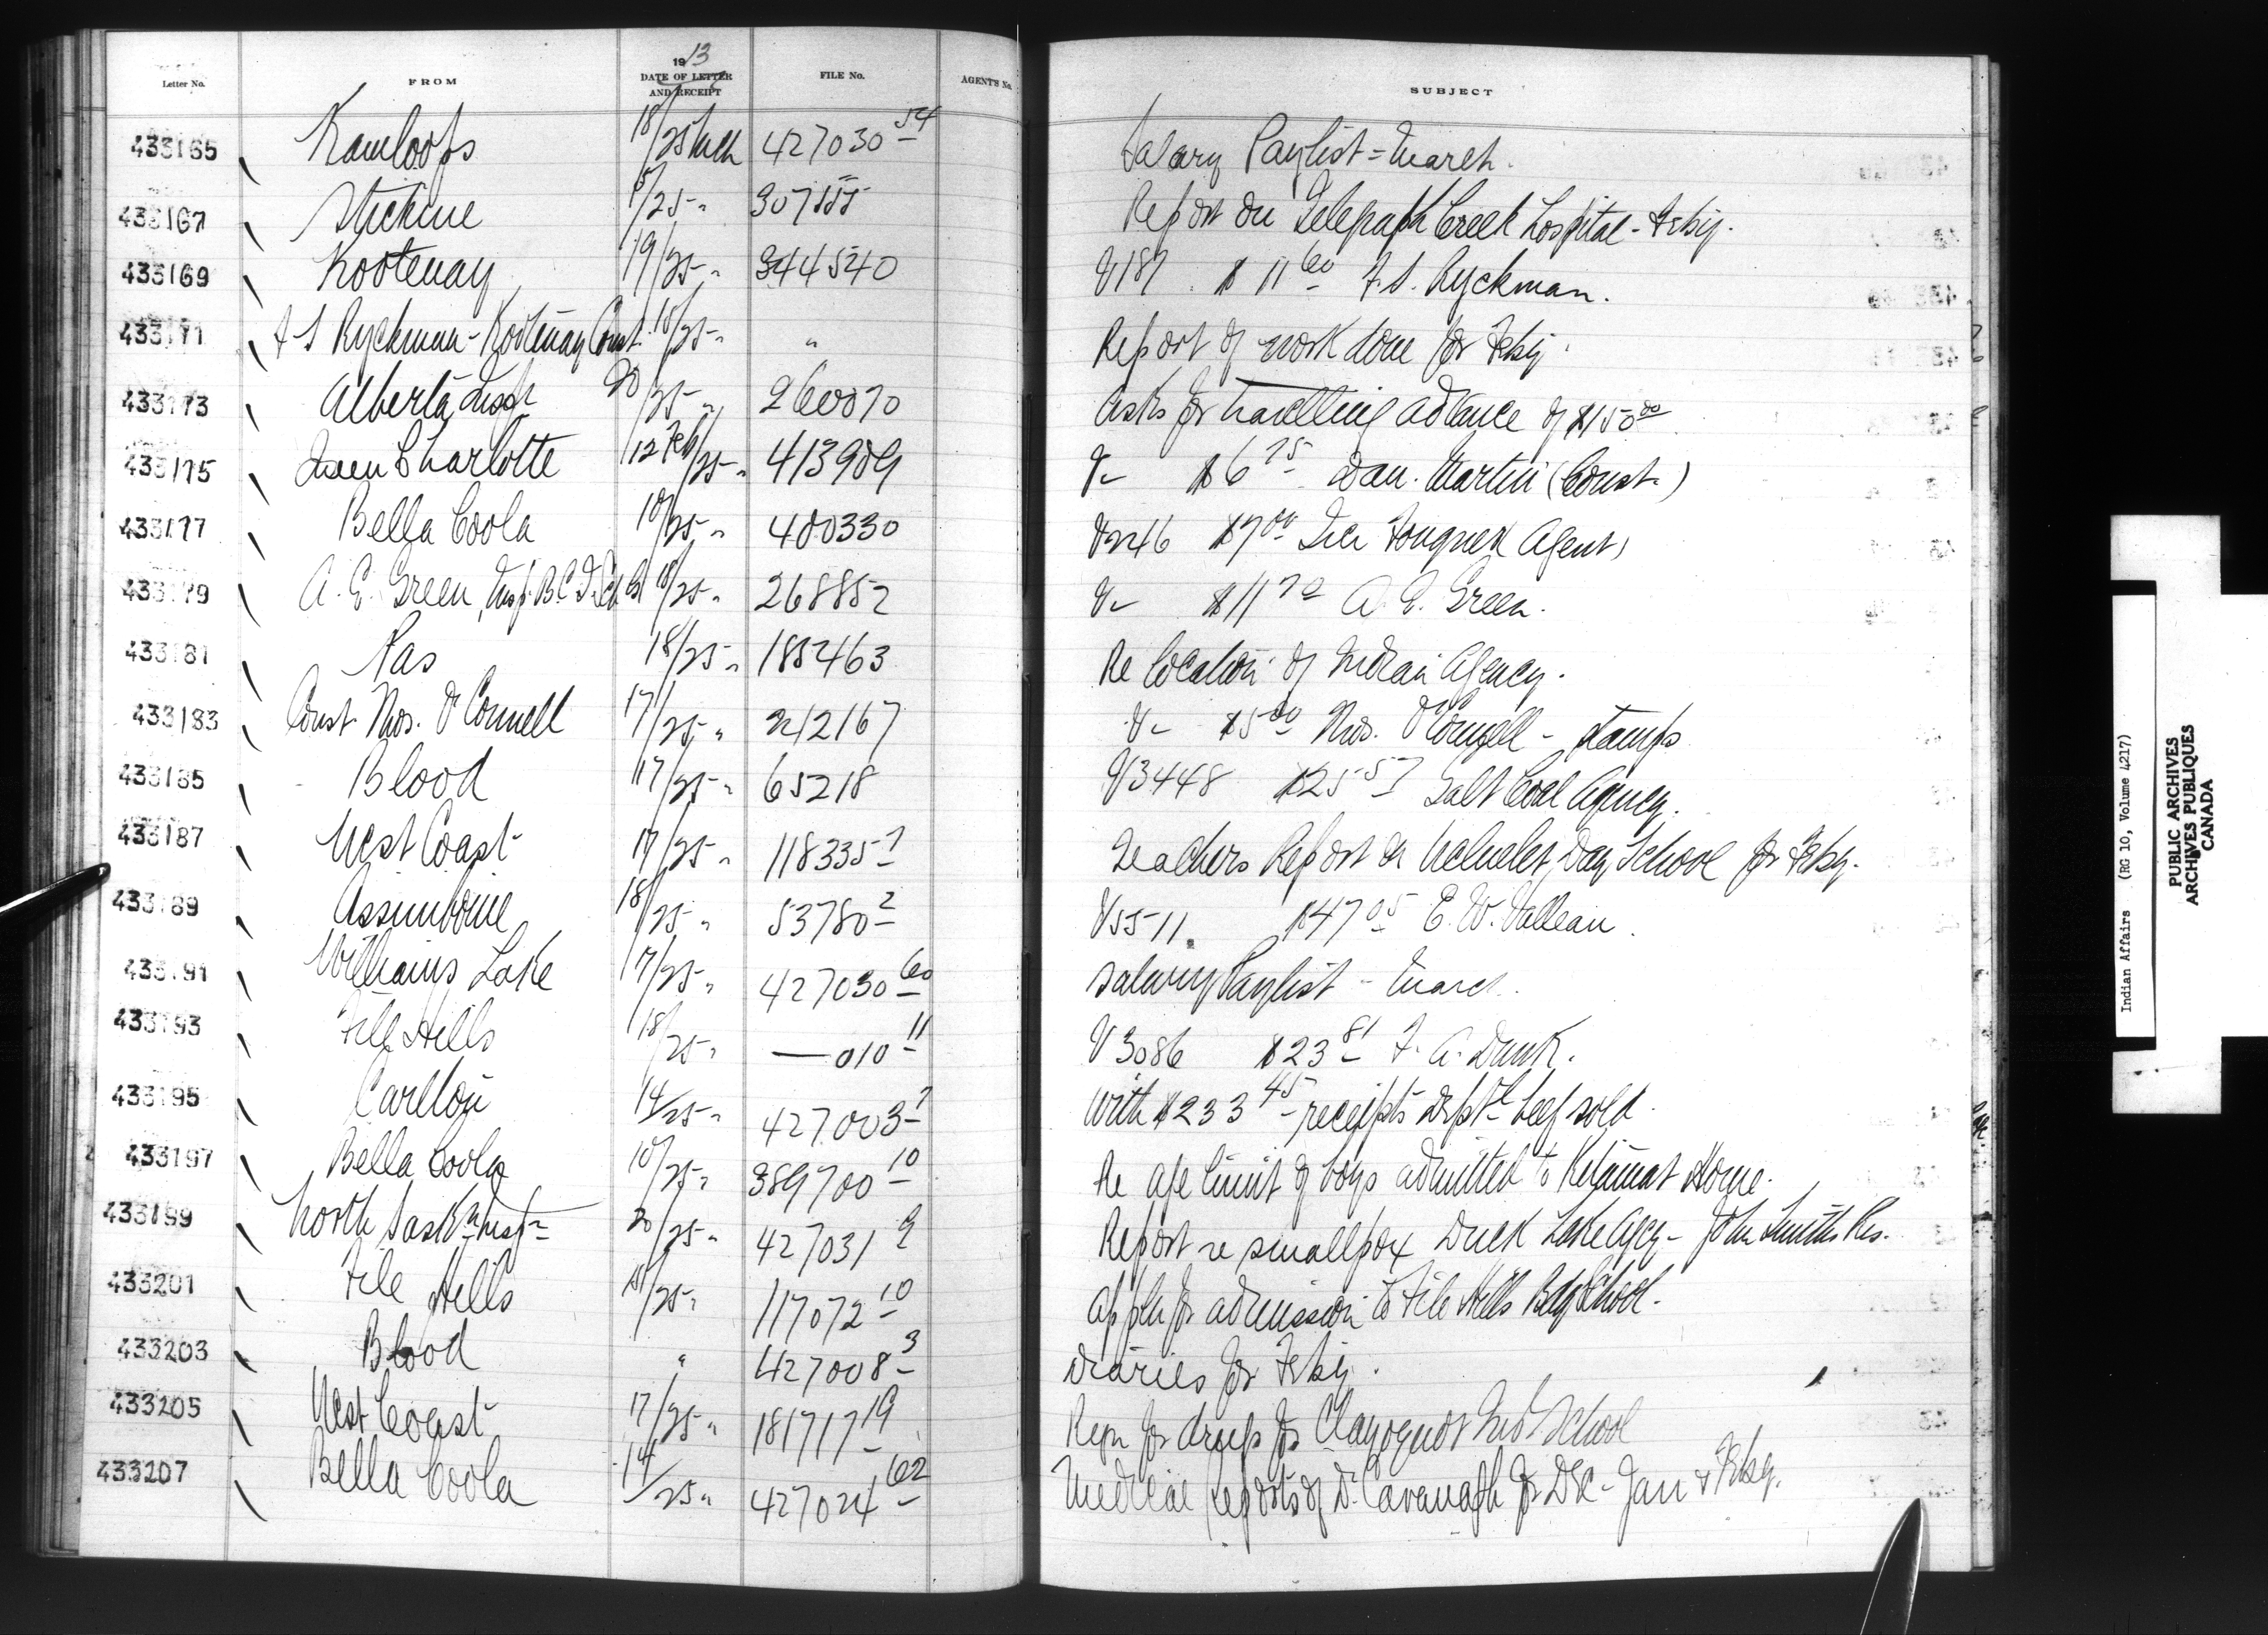 1913
Letter No. FROM DATE OF LETTER AND RECEIPT FILE No. AGENT'S No. SUBJECT
433165 Kamloops 18/25 Mch 427030 54 Salary Paylist = March.
433167 Stickine 5/25 " 307155 Report on Telegraph Creek Hospital - Feby.
433169 Kootenay 19/25 " 344540 V187 $11 60 F.S. Ryckman.
433171 F S Ryckman - Kootenay Const. 18/25 " " Report of work done for Feby.
433173 Alberta Insp 20/25 " 260070 Asks for travelling advance of $150 00
433175 Queen Charlotte 12 Feb/25 " 413909 V- $6 75 Dan. Martin (Const.)
433177 Bella Coola 10/25 " 400330 V246 $7 00 Iver Fougner Agent
433179 A. E. Green, Insp. B.C. 18/25 " 268852 V- $11 70 A. E. Green.
433181 Pas 18/25 " 185463 Re location of Indian Agency.
433183 Const. Thos. O'Connell 17/25 " 212167 V- $5 00 Thos. O'Connell - stamps
433185 Blood 17/25 " 65218 V3448 $25 57 Galt Coal Agency.
433187 West Coast 17/25 " 118335 7 Teachers Report on Ucluelet Day School for Feby.
433189 Assiniboine 18/25 " 53780 2 V5511. $47 05 E. W. Valleau.
433191 Williams Lake 17/25 " 427030 60 Salary Paylist - March.
433193 File Hills 18/25 " — 010 11 V3086 $23 81 F. A. Dunk.
433195 Carlton 14/25 " 427003 7 With $233 45 - receipts Dept'l beef sold.
433197 Bella Coola 10/25 " 389700 10 Re age limit of boys admitted to Kitimat Home.
433199 North Sask'n Insp 20/25 " 427031 9 Report re smallpox Duck Lake Agcy - John Smith's Res.
433201 File Hills 18/25 " 117072 10 Appln for admission to File Hills Bdg School.
433203 Blood " 427008 3 Diaries for Feby.
433205 West Coast 17/25 " 181717 19 Reqn for drugs for Clayoquot Ind School
433207 Bella Coola 14/25 " 427024 62 Medical Reports of Dr. Cavanagh for Dec - Jan & Feby.
Indian Affairs (RG 10, Volume 4217)
PUBLIC ARCHIVES
ARCHIVES PUBLIQUES
CANADA